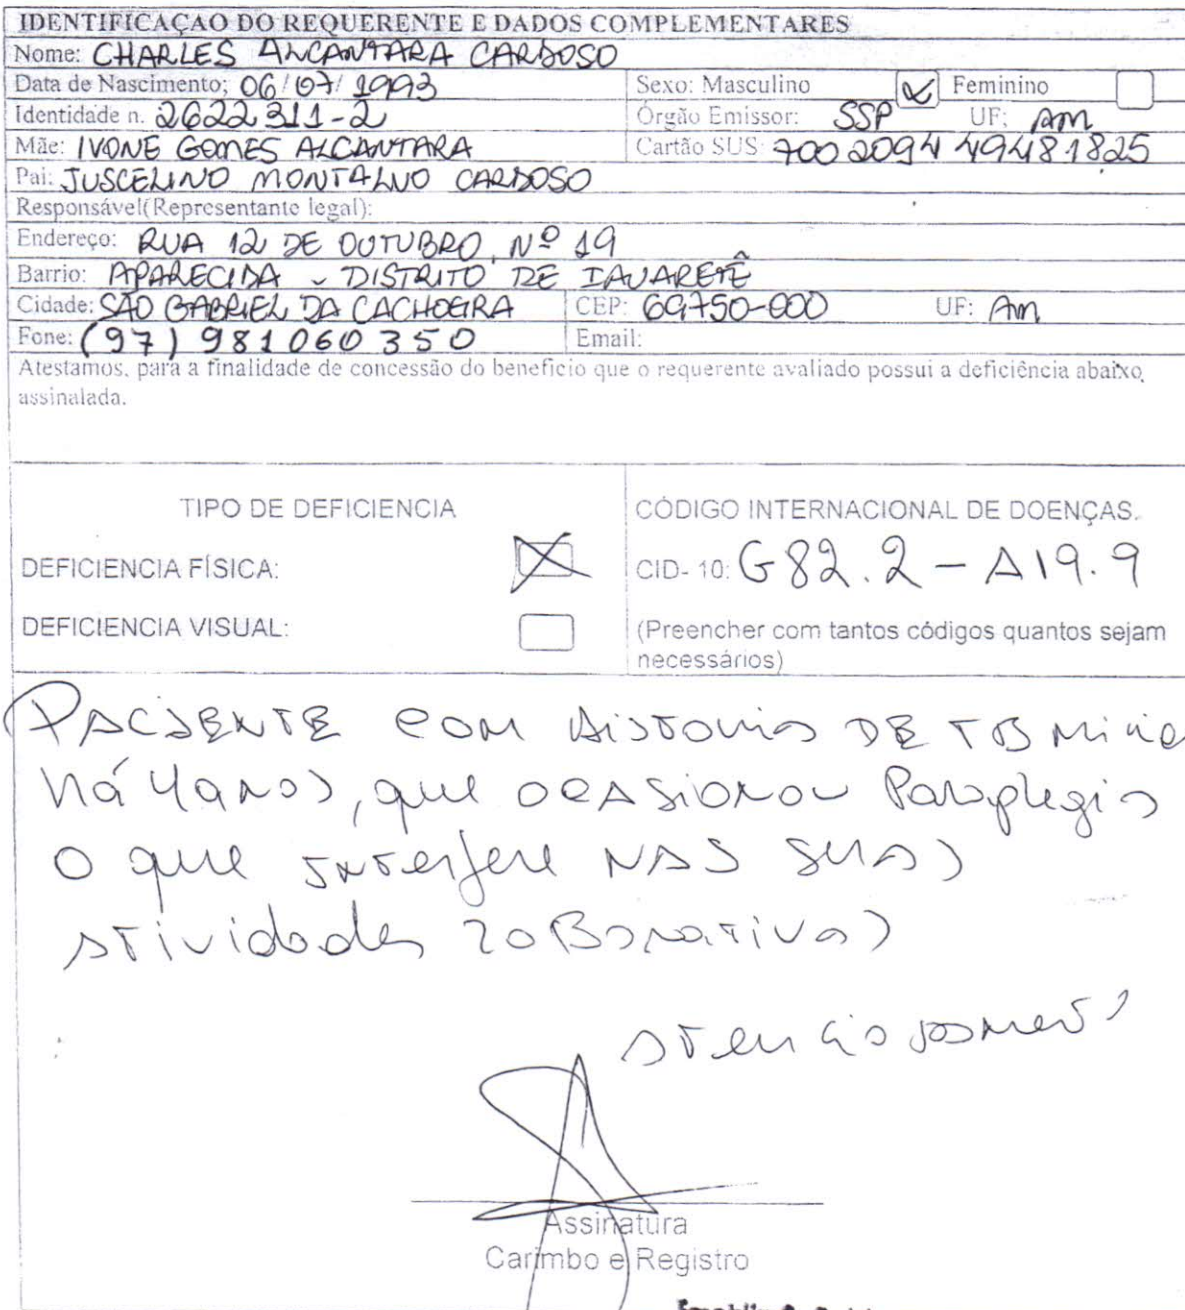 IDENTIFICAÇAO DO REQUERENTE E DADOS COMPLEMENTARES
Nome: CHARLES ALCANTARA CARDOSO
Data de Nascimento; 06/07/1993 Sexo: Masculino Feminino
Identidade n. 2622311-2 Órgão Emissor: SSP UF: Am
Mãe: IVONE GOMES ALCANTARA Cartão SUS: 700 2094 49481825
Pai: JUSCELINO MONTALVO CARDOSO
Responsável(Representante legal):
Endereço: RUA 12 DE OUTUBRO, Nº 19
Barrio: APARECIDA - DISTRITO DE IAUARETÊ
Cidade: SÃO GABRIEL DA CACHOEIRA CEP: 69750-000 UF: Am
Fone: (97) 981060350 Email:
Atestamos, para a finalidade de concessão do beneficio que o requerente avaliado possui a deficiência abaixo
assinalada.
TIPO DE DEFICIENCIA
DEFICIENCIA FÍSICA:
DEFICIENCIA VISUAL:
CÓDIGO INTERNACIONAL DE DOENÇAS.
CID- 10: G82.2 - A19.9
(Preencher com tantos códigos quantos sejam
necessários)
PACIENTE COM história DE TB
há 4 anos, que ocasionou Paraplegia
O que interfere NAS suas
atividades
Assinatura
Carimbo e Registro